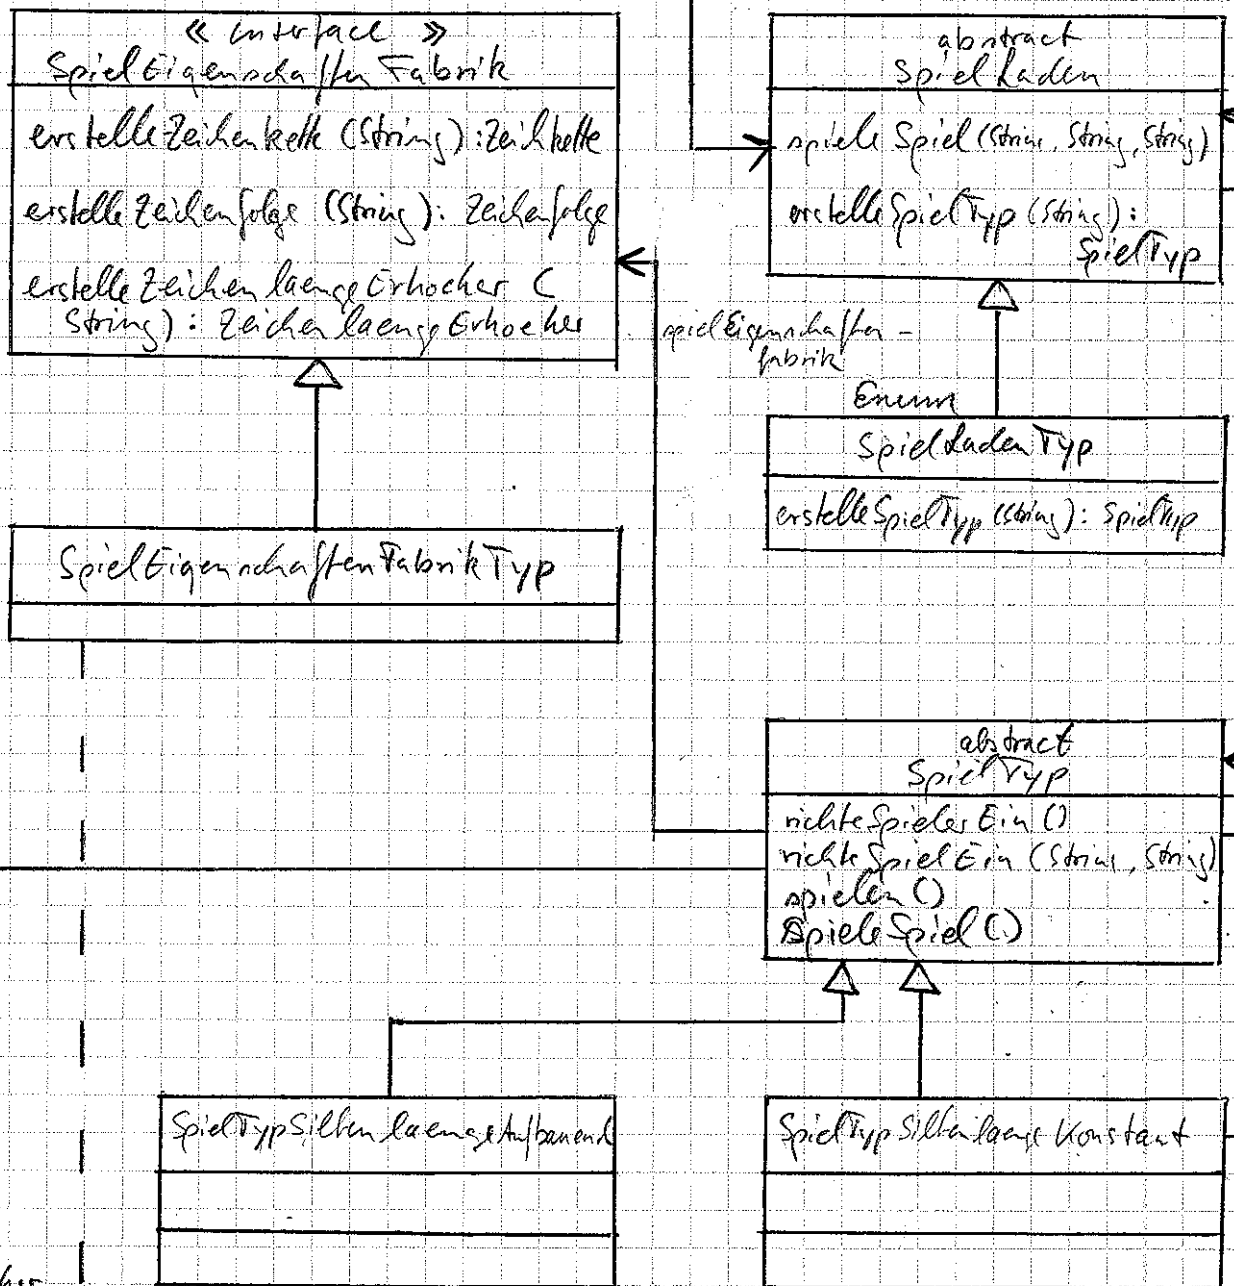 « interface »
SpielEigenschaftenFabrik
erstelleZeichenkette (String) : Zeichkette
erstelleZeichenfolge (String) : Zeichenfolge
erstelleZeichenlaengeErhoeher (
String) : ZeichenlaengeErhoeher
abstract
SpielLaden
spieleSpiel (String, String, String)
erstelleSpielTyp (String) :
SpielTyp
spielEigenschaften-
fabrik
Enum
SpielLadenTyp
erstelleSpielTyp (String) : SpielTyp
SpielEigenschaftenFabrikTyp
abstract
SpielTyp
richteSpielerEin ()
richteSpielEin (String, String)
spielen ()
spieleSpiel ()
SpielTypSilbenlaengeAufbauend
SpielTypSilbenlaengeKonstant